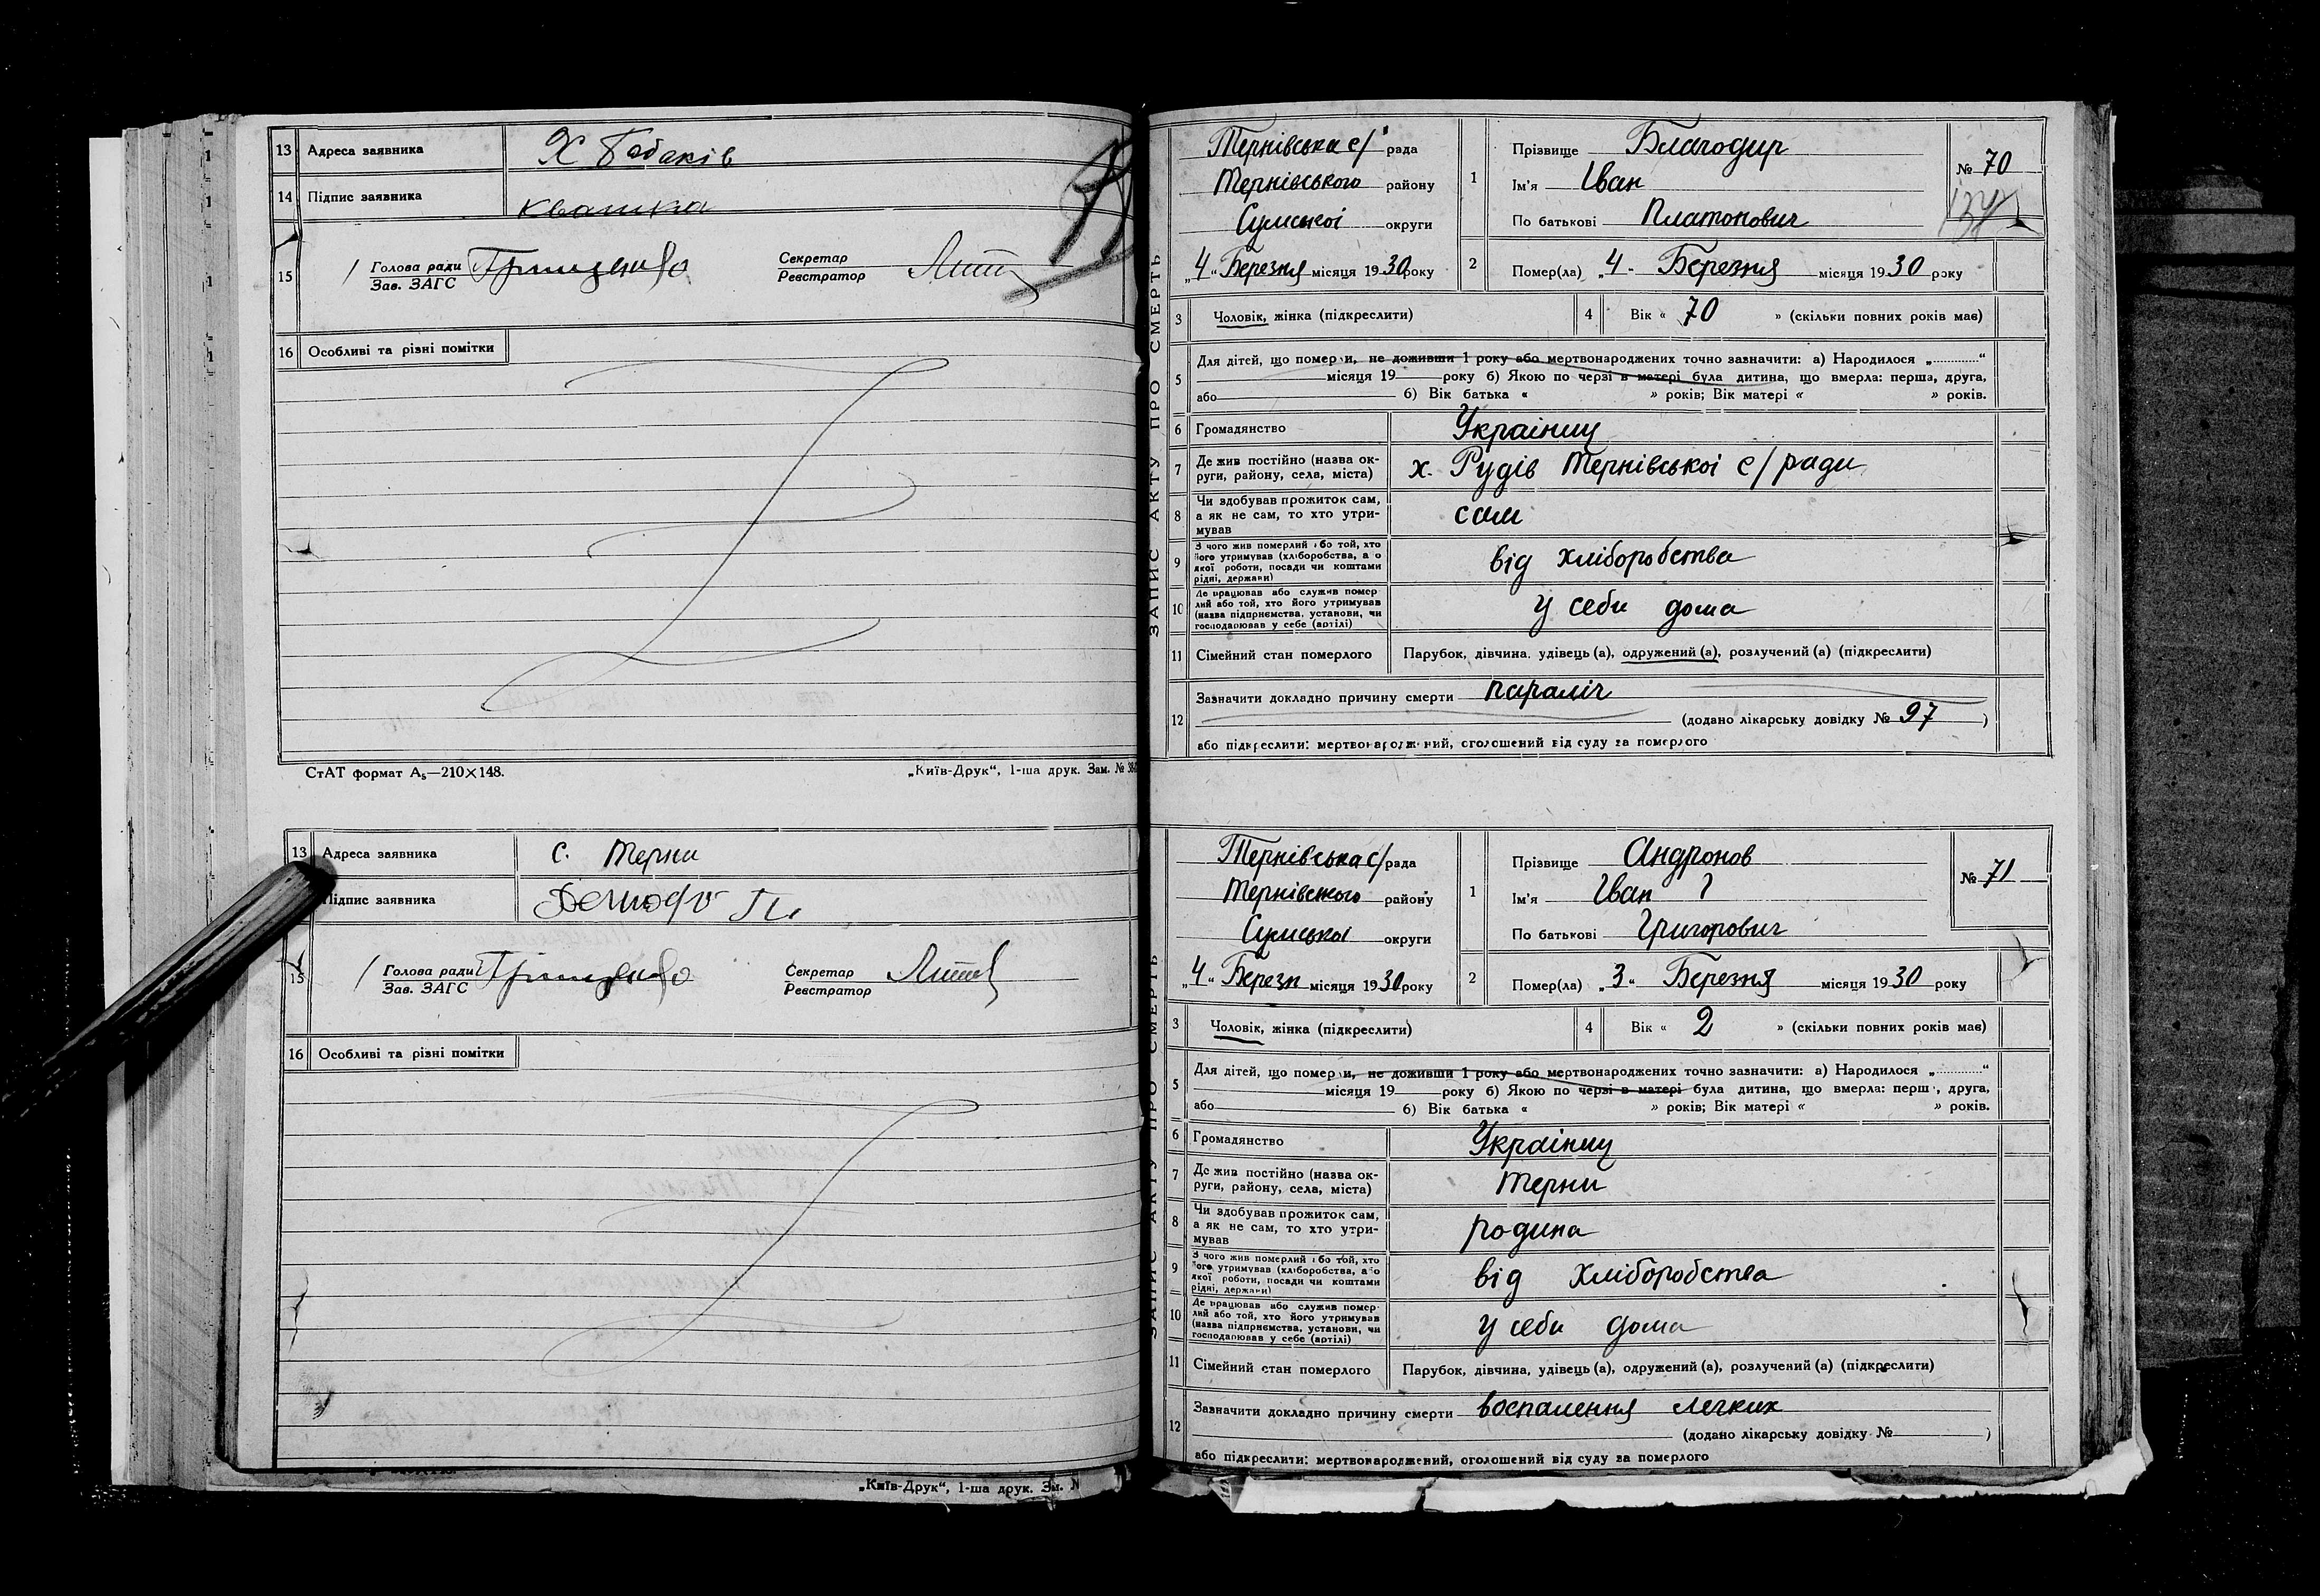 13 Адреса заявника Х Бабаків
14 Підпис заявника Квашка
15 Голова ради
Зав. ЗАГС Грищенко Секретар
Реєстратор
16 Особливі та різні помітки
СтАТ формат А₅—210×148. „Київ-Друк“, 1-ша друк. Зам. №
13 Адреса заявника с. Терни
Підпис заявника
15 Голова ради
Зав. ЗАГС Грищенко Секретар
Реєстратор
16 Особливі та різні помітки
„Київ-Друк“, 1-ша друк. Зам. №
ЗАПИС АКТУ ПРО СМЕРТЬ
Тернівська с/ рада
Тернівського району
Сумської округи
„4“ Березня місяця 1930 року
1 Прізвище Благодир
Ім'я Іван
По батькові Платонович
№ 70
137
2 Помер(ла) „4“ Березня місяця 1930 року
3 Чоловік, жінка (підкреслити) 4 Вік « 70 » (скільки повних років має)
5 Для дітей, що померли, не доживши 1 року або мертвонароджених точно зазначити: а) Народилося „..........“
місяця 19 року б) Якою по черзі в матері була дитина, що вмерла: перша, друга,
або б) Вік батька « » років; Вік матері « » років.
6 Громадянство Українец
7 Де жив постійно (назва ок-
руги, району, села, міста) х. Рудів Тернівської с/ради
8 Чи здобував прожиток сам,
а як не сам, то хто утри-
мував сам
9 З чого жив померлий або той, хто
його утримував (хліборобства, або
якої роботи, посади чи коштами
рідні, держави) від хліборобства
10 Де працював або служив помер-
лий або той, хто його утримував
(назва підприємства, установи, чи
господарював у себе (артілі) у себи дома
11 Сімейний стан померлого Парубок, дівчина, удівець (а), одружений (а), розлучений (а) (підкреслити)
12 Зазначити докладно причину смерти параліч
(додано лікарську довідку № 97 )
або підкреслити: мертвонароджений, оголошений від суду за померлого
ЗАПИС АКТУ ПРО СМЕРТЬ
Тернівська с/ рада
Тернівского району
Сумської округи
„4“ Березн місяця 1930 року
1 Прізвище Андронов
Ім'я Іван
По батькові Григорович
№ 71
2 Помер(ла) „3“ Березня місяця 1930 року
3 Чоловік, жінка (підкреслити) 4 Вік « 2 » (скільки повних років має)
5 Для дітей, що померли, не доживши 1 року або мертвонароджених точно зазначити: а) Народилося „..........“
місяця 19 року б) Якою по черзі в матері була дитина, що вмерла: перша, друга,
або б) Вік батька « » років; Вік матері « » років.
6 Громадянство Українец
7 Де жив постійно (назва ок-
руги, району, села, міста) Терни
8 Чи здобував прожиток сам,
а як не сам, то хто утри-
мував родина
9 З чого жив померлий або той, хто
його утримував (хліборобства, або
якої роботи, посади чи коштами
рідні, держави) від хліборобства
10 Де працював або служив помер-
лий або той, хто його утримував
(назва підприємства, установи, чи
господарював у себе (артілі) у себи дома
11 Сімейний стан померлого Парубок, дівчина, удівець (а), одружений (а), розлучений (а) (підкреслити)
12 Зазначити докладно причину смерти воспалення легких
(додано лікарську довідку № )
або підкреслити: мертвонароджений, оголошений від суду за померлого